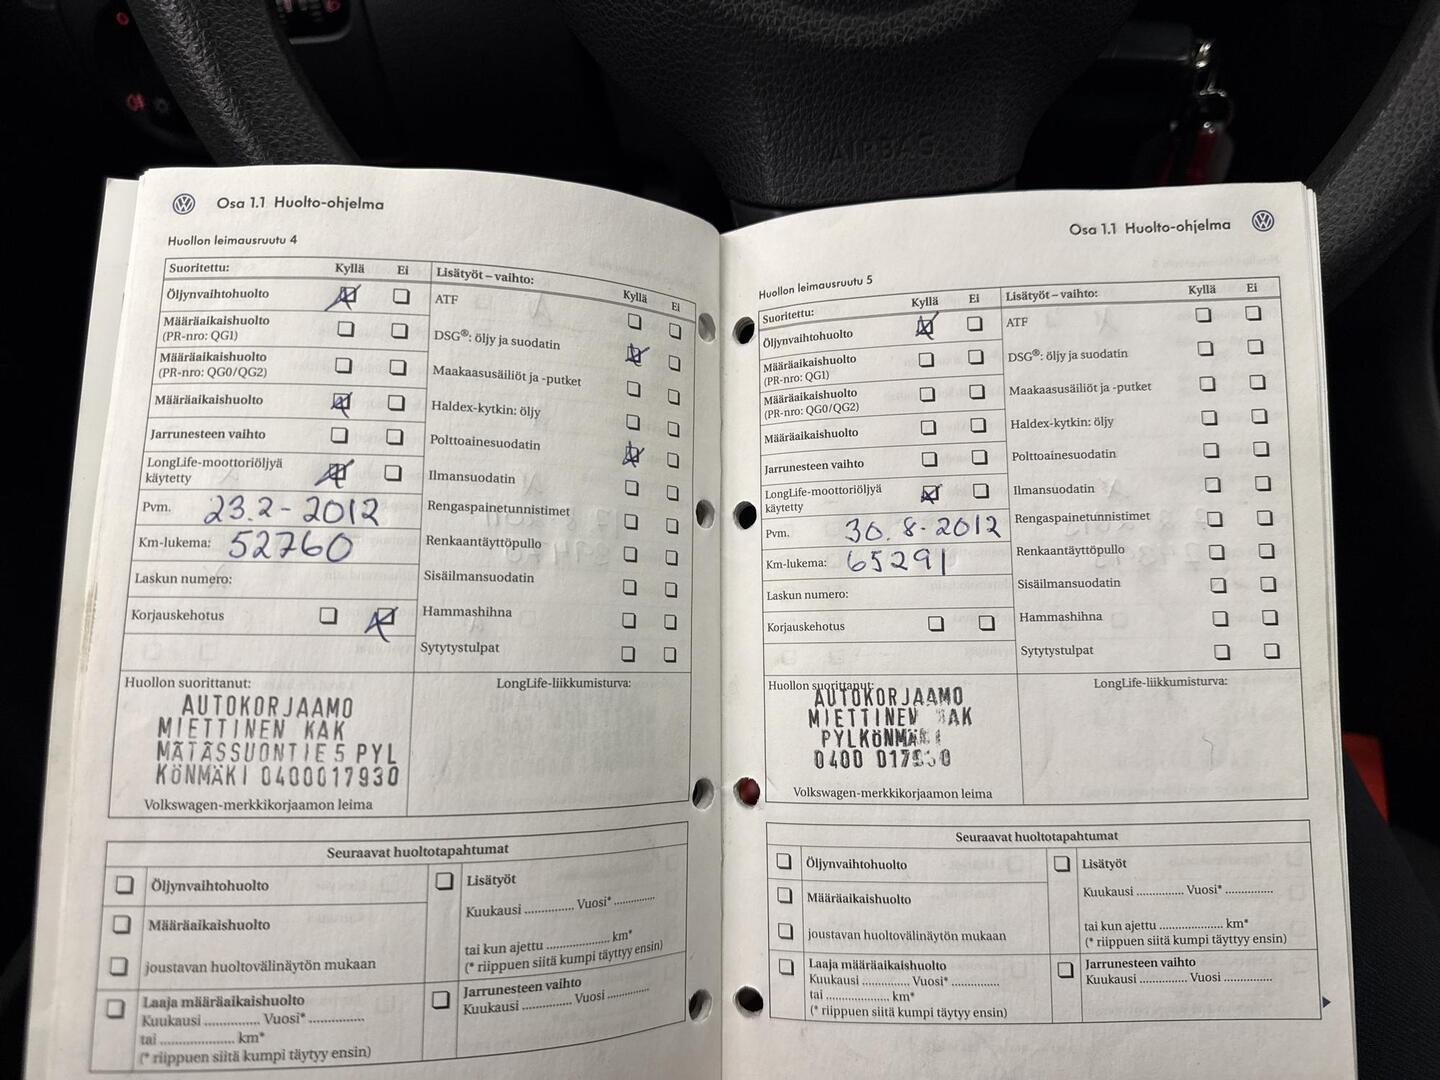 AIRBAG
Osa 1.1 Huolto-ohjelma
Huollon leimausruutu 4
Suoritettu: Kyllä Ei
Öljynvaihtohuolto
Määräaikaishuolto
(PR-nro: QG1)
Määräaikaishuolto
(PR-nro: QG0/QG2)
Määräaikaishuolto
Jarrunesteen vaihto
LongLife-moottoriöljyä
käytetty
Pvm. 23.2-2012
Km-lukema: 52760
Laskun numero:
Korjauskehotus
Lisätyöt – vaihto: Kyllä Ei
ATF
DSG®: öljy ja suodatin
Maakaasusäiliöt ja -putket
Haldex-kytkin: öljy
Polttoainesuodatin
Ilmansuodatin
Rengaspainetunnistimet
Renkaantäyttöpullo
Sisäilmansuodatin
Hammashihna
Sytytystulpat
Huollon suorittanut:
AUTOKORJAAMO
MIETTINEN KAK
MÄTÄSSUONTIE 5 PYL
KÖNMÄKI 0400017930
Volkswagen-merkkikorjaamon leima
LongLife-liikkumisturva:
Seuraavat huoltotapahtumat
Öljynvaihtohuolto
Määräaikaishuolto
joustavan huoltovälinäytön mukaan
Laaja määräaikaishuolto
Kuukausi ............... Vuosi* ...............
tai ..................... km*
(* riippuen siitä kumpi täytyy ensin)
Lisätyöt
Kuukausi .............. Vuosi* ............
tai kun ajettu .................. km*
(* riippuen siitä kumpi täyttyy ensin)
Jarrunesteen vaihto
Kuukausi .............. Vuosi ............
Osa 1.1 Huolto-ohjelma
Huollon leimausruutu 5
Suoritettu: Kyllä Ei
Öljynvaihtohuolto
Määräaikaishuolto
(PR-nro: QG1)
Määräaikaishuolto
(PR-nro: QG0/QG2)
Määräaikaishuolto
Jarrunesteen vaihto
LongLife-moottoriöljyä
käytetty
Pvm. 30.8-2012
Km-lukema: 65291
Laskun numero:
Korjauskehotus
Lisätyöt – vaihto: Kyllä Ei
ATF
DSG®: öljy ja suodatin
Maakaasusäiliöt ja -putket
Haldex-kytkin: öljy
Polttoainesuodatin
Ilmansuodatin
Rengaspainetunnistimet
Renkaantäyttöpullo
Sisäilmansuodatin
Hammashihna
Sytytystulpat
Huollon suorittanut:
AUTOKORJAAMO
MIETTINEN KAK
PYLKÖNMÄKI
0400 017930
Volkswagen-merkkikorjaamon leima
LongLife-liikkumisturva:
Seuraavat huoltotapahtumat
Öljynvaihtohuolto
Määräaikaishuolto
joustavan huoltovälinäytön mukaan
Laaja määräaikaishuolto
Kuukausi .............. Vuosi* ..............
tai ................... km*
(* riippuen siitä kumpi täyttyy ensin)
Lisätyöt
Kuukausi .............. Vuosi* ..............
tai kun ajettu ................... km*
(* riippuen siitä kumpi täyttyy ensin)
Jarrunesteen vaihto
Kuukausi .............. Vuosi ..............